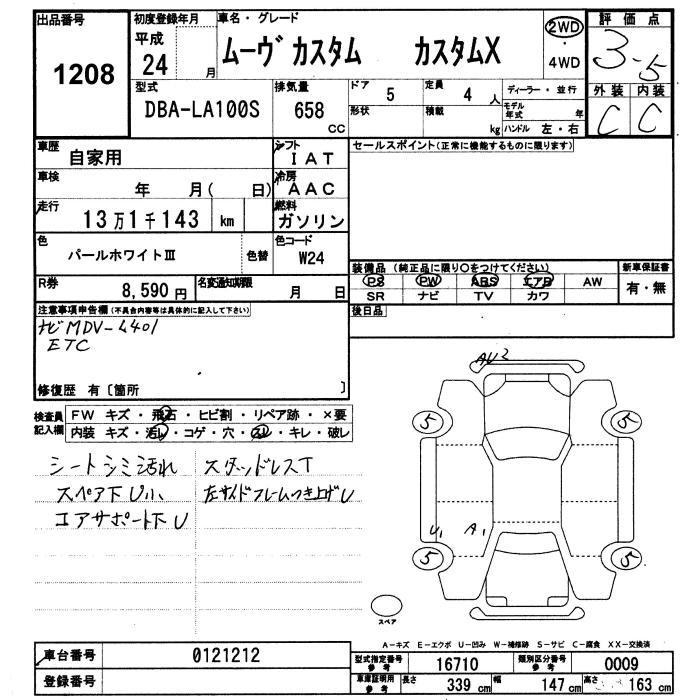 出品番号 1208
初度登録年月 平成 24 月
車名・グレード
ムーヴ カスタム カスタムX
2WD・4WD
評価点 3.5
外装 内装
C C
型式 DBA-LA100S
排気量 658 CC
ドア 5
定員 4 人
形状 積載 kg
ディーラー・並行
モデル年式 年
ハンドル 左・右
車歴 自家用
シフト IAT
車検 年 月( 日)
冷房 AAC
走行 13万1千143 km
燃料 ガソリン
色 パールホワイトⅢ 色替
色コード W24
R券 8,590円
名変通知期限 月 日
セールスポイント(正常に機能するものに限ります)
装備品 (純正品に限り○をつけてください)
PS PW ABS エアB AW
SR ナビ TV カワ
新車保証書 有・無
後日品
注意事項申告欄(不具合内容等は具体的に記入して下さい)
ナビMDV-L401
ETC
修復歴 有〔箇所 〕
検査員記入欄
FW キズ・飛石・ヒビ割・リペア跡・×要
内装 キズ・汚れ・コゲ・穴・スレ・キレ・破レ
シートシミ汚れ スタッドレスT
スペア下U小 左サイドフレームつき上げU
コアサポート下U
AU2
5 5
U1 A1
5 5
スペア
A-キズ E-エクボ U-凹み W-補修跡 S-サビ C-腐食 XX-交換済
車台番号 0121212
登録番号
型式指定番号 参考 16710
類別区分番号 参考 0009
車庫証明用 参考 長さ 339 cm 幅 147 cm 高さ 163 cm